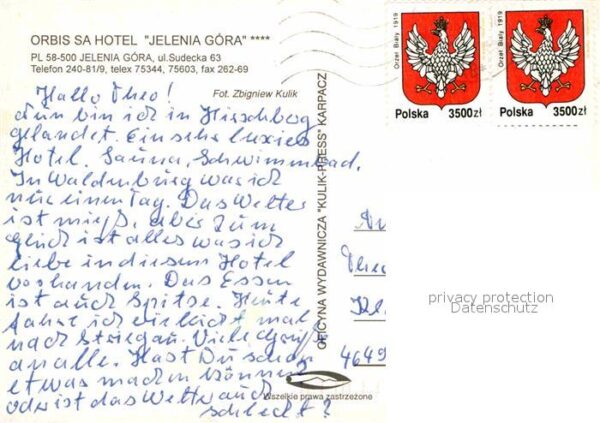 ORBIS SA HOTEL "JELENIA GÓRA" ****
PL 58-500 JELENIA GÓRA, ul.Sudecka 63
Telefon 240-81/9, telex 75344, 75603, fax 262-69
Fot. Zbigniew Kulik
Hallo Theo!
Nun bin ich in Hirschberg
gelandet. Ein sehr luxiös
Hotel. Sauna, Schwimmbad.
In Waldenburg was ich
nur einen Tag. Das Wetter
ist mieß, aber zum
glück ist alles was ich
liebe in diesem Hotel
vorhanden. Das Essen
ist auch Spitze. Heute
fahre ich vielleicht mal
nach Striegau. Viele
an alle. Hast Du schon
etwas machen können
oder ist das Wetter auch
schlecht?
OFICYNA WYDAWNICZA "KULIK-PRESS" KARPACZ
Wszelkie prawa zastrzeżone
Orzeł Biały 1919
Polska 3500zł
Orzeł Biały 1919
Polska 3500zł
The
4649
privacy protection
Datenschutz